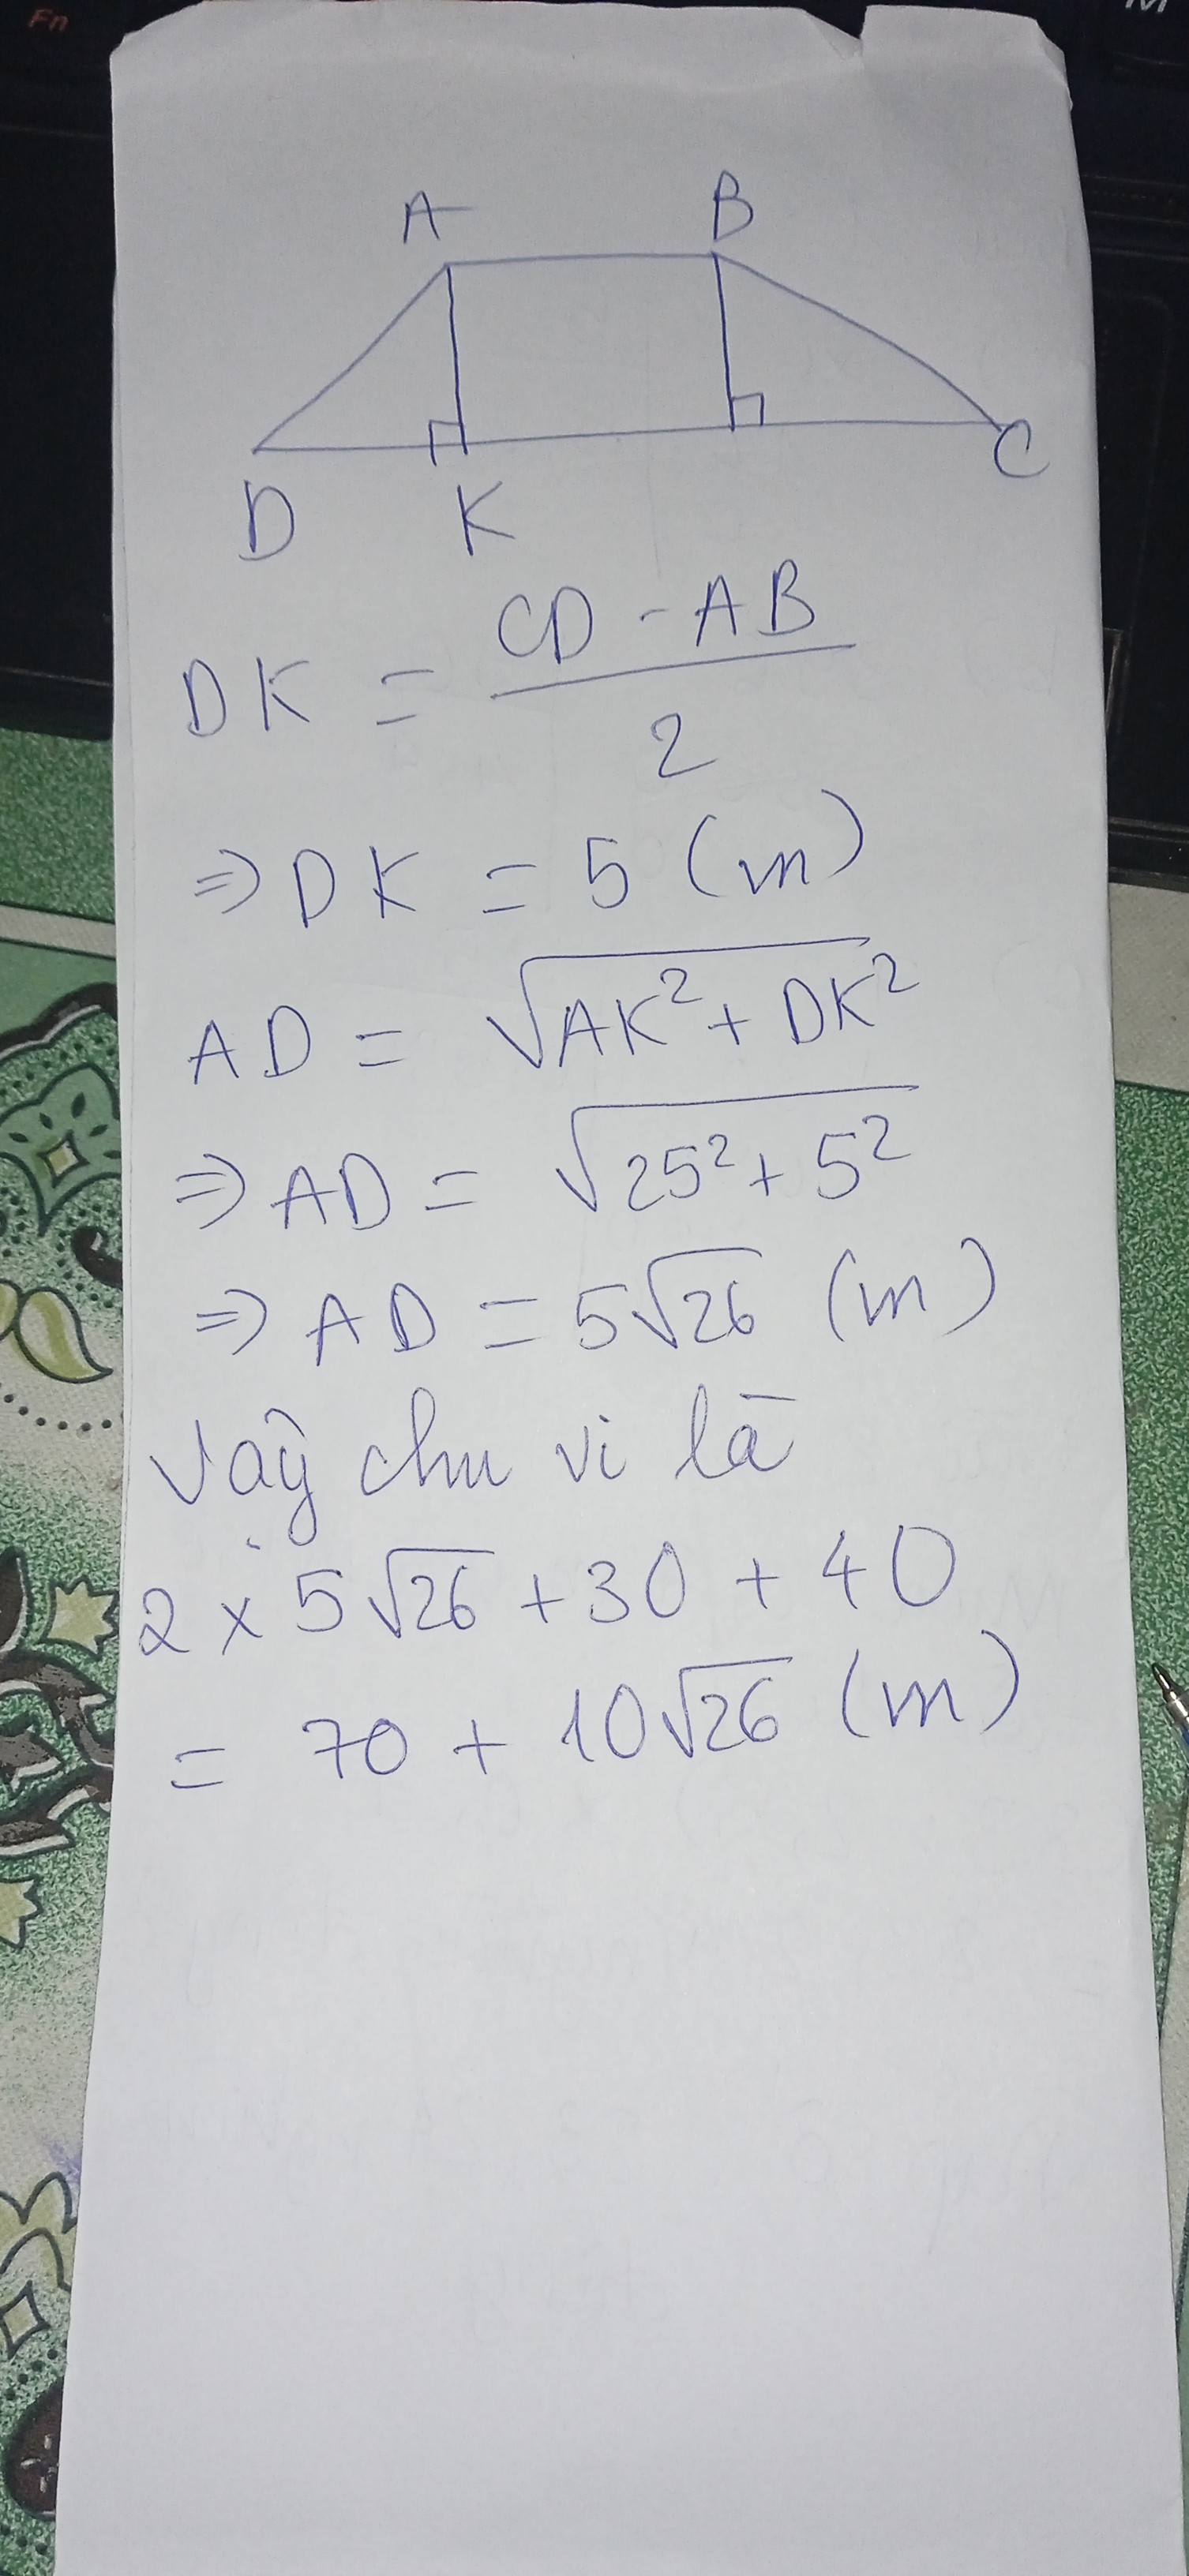 Fn
M
A B
D K C
DK = \frac{CD - AB}{2}
⇒ DK = 5 (m)
AD = √(AK² + DK²)
⇒ AD = √(25² + 5²)
⇒ AD = 5√26 (m)
Vậy chu vi là
2 × 5√26 + 30 + 40
= 70 + 10√26 (m)